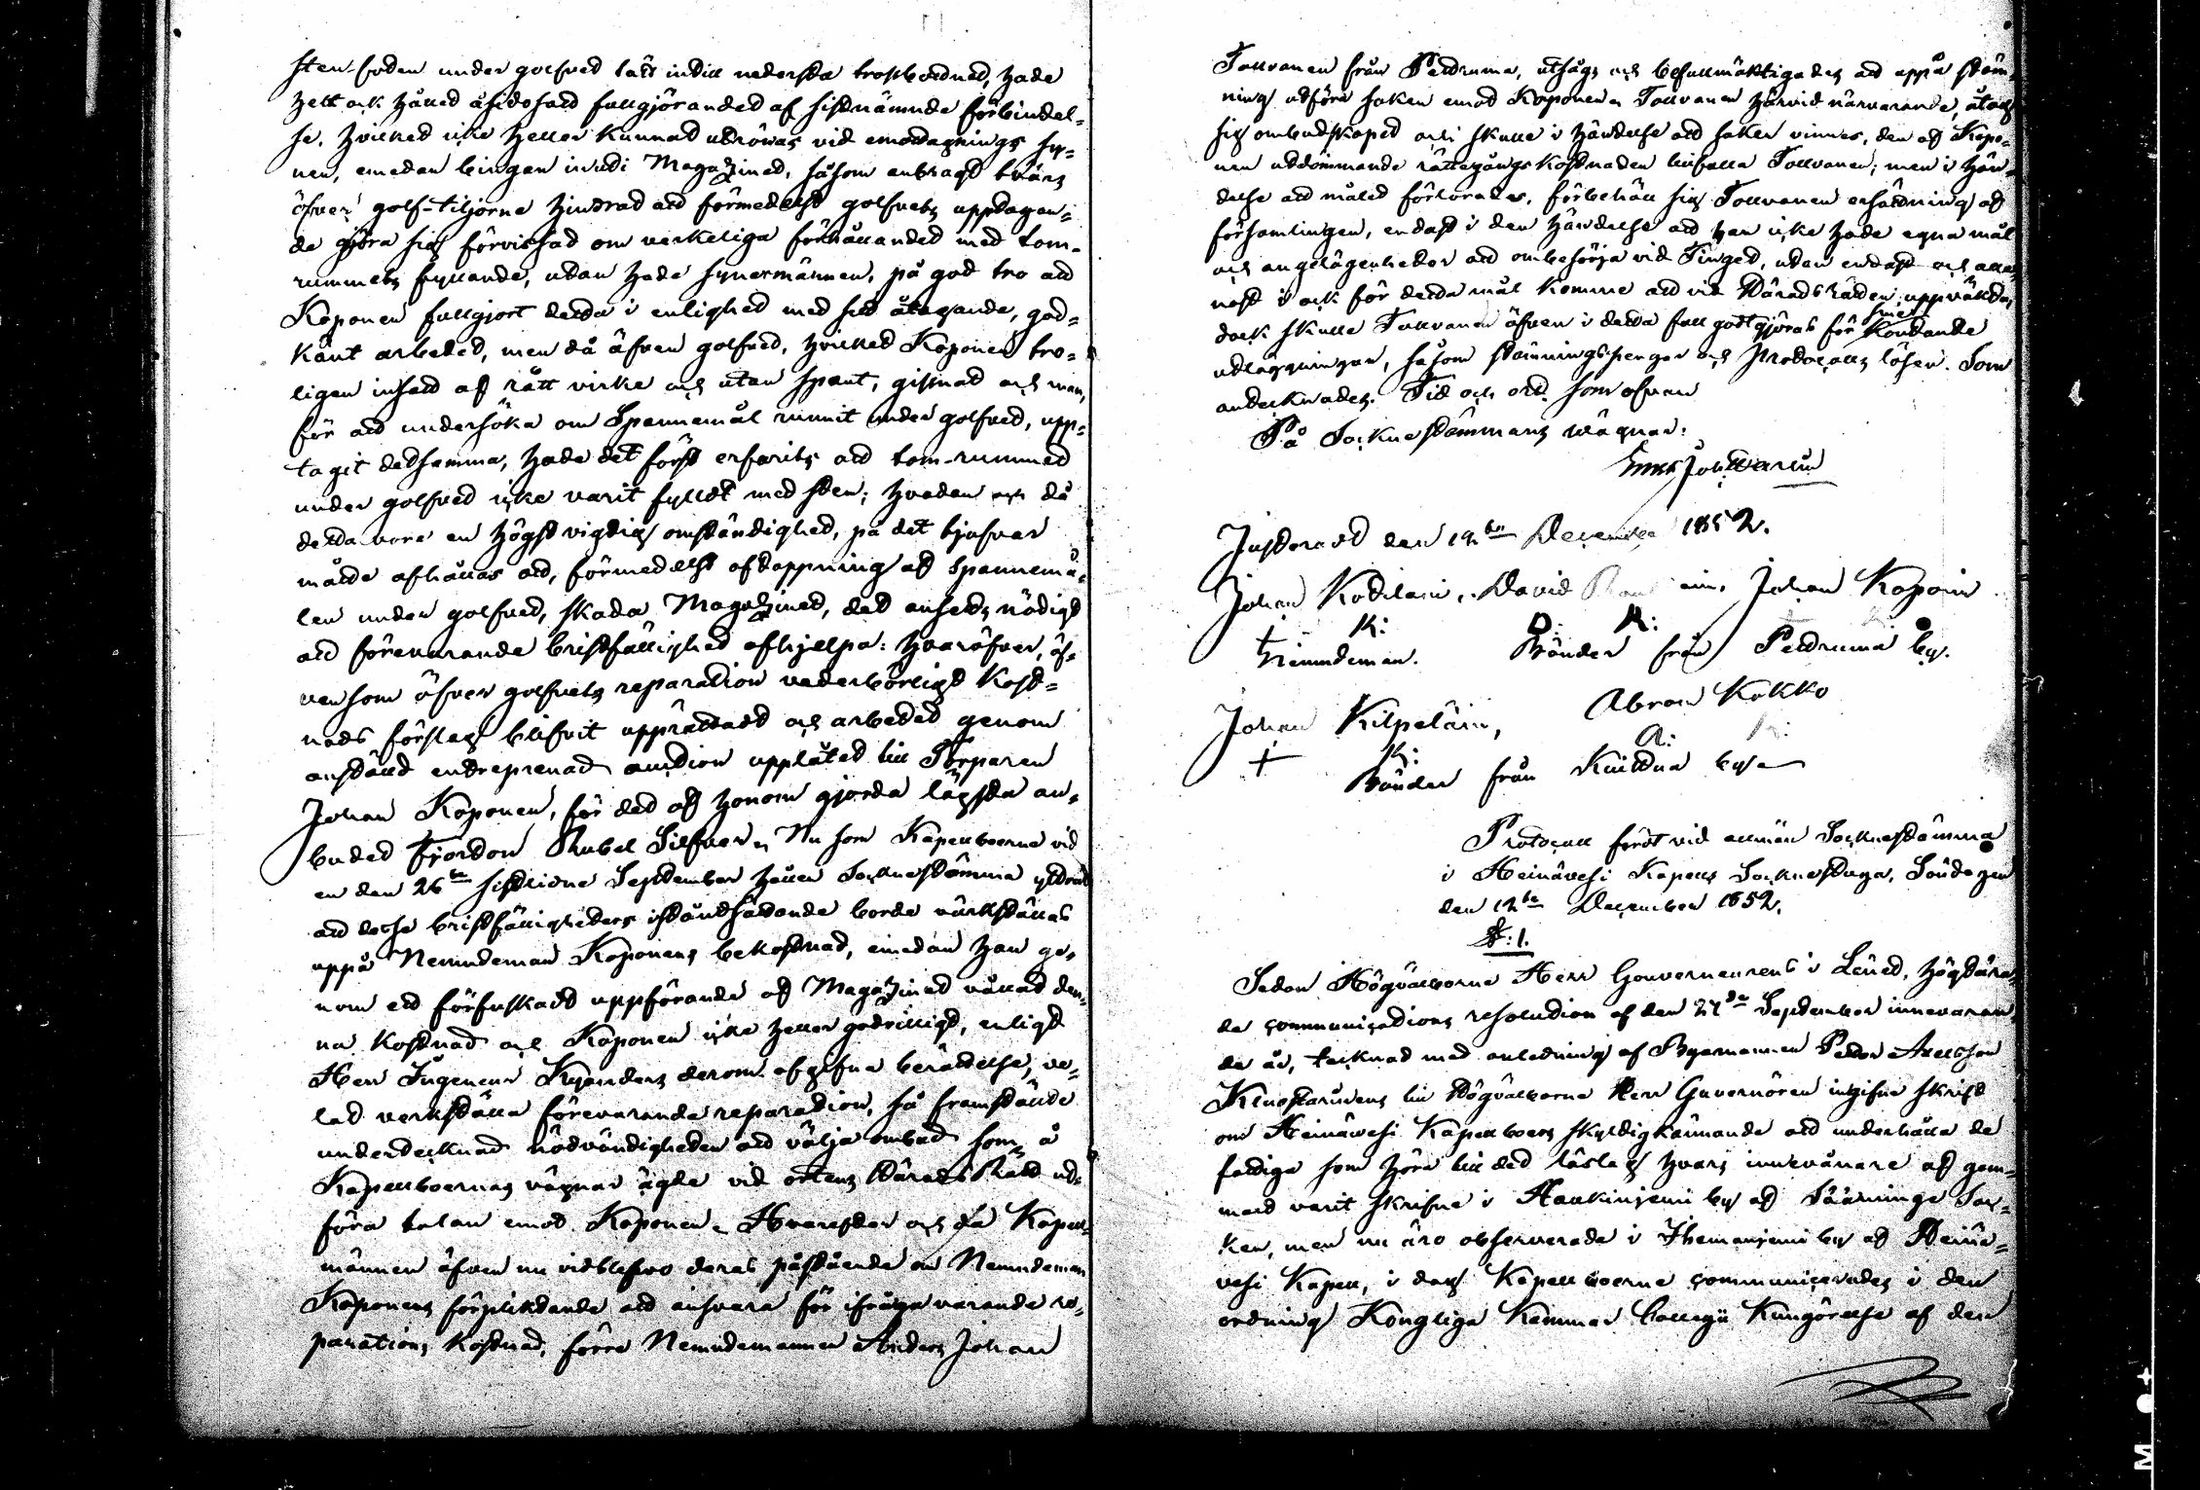 sten-foden under golfved tätt intill nedersta trossbordnad, hade
helt ock hållet åsidosatt fullgörandet af sistnämnde förbindel-
se, hvilket icke heller kunnat utrönas vid emottagnings sy-
nen, emedan bingen inuti Magazinet, såsom anbragt tvärs
öfver golf-tiljorne hindrat att förmedelst golfvets upptagan-
de göra sig förvissad om verkeliga förhållandet med tom-
rummets fyllande, utan hade synemännen, på god tro att
Koponen fullgjort detta i enlighet med sitt åtagande, god-
känt arbetet, men då äfven golfvet, hvilket Koponen tro-
ligen insatt af rått virke och utan spont, gisnat och man,
för att undersöka om Spannemål runnit under golfvet, upp-
tagit detsamma, hade det först erfarits att tom-rummet
under golfvet icke varit fylldt med sten; hvadan och då
detta vore en högst vigtig omständighet, på det tjufvar
måtte afhållas att, förmedelst aftappning af spannemå-
len under golfvet, skada Magazinet, det ansetts nödigt
att förevarande bristfällighet afhjelpa: hvaröfver, äf-
vensom öfver golfvets reparation vederbörligt kost-
nads förslag blifvit upprättadt och arbetet genom
anställd entreprenad auction upplåtet till Torparen
Johan Koponen, för det af honom gjorda lägsta an-
budet Fjorton Rubel Silfver. Nu som Kapellboerne vid
en den 26te sistlidne September hållen Sockenstämma yttrat
att desse bristfälligheters iståndsättande borde verkställas
uppå Nemndeman Koponens bekostnad, emedan han ge-
nom ett förfuskadt uppförande af Magazinet vållat den-
na kostnad och Koponen icke heller godvilligt, enligt
Herr Ingeneur Kyanders derom afgifna berättelse, ve-
lat verkställa förevarande reparation, så framställde
undertecknad nödvändigheten att välja ombud som å
Kapellboernas vägnar ägde vid ortens Härads Rätt ut-
föra talan emot Koponen. Hvarefter och då Kapell-
männen äfven nu vidblefvo deras påstående om Nemndeman
Koponens förpliktande att ansvara för ifrågavarande re-
parations kostnad, förre Nemndemannen Anders Johan
Tollvanen från Petruma, utsågs och befullmäktigades att uppå stäm-
ning utföra saken emot Koponen. Tollvanen härvid närvarande, åtog
sig ombudskapet och skulle i händelse att saken vinnes, den af Kopo-
nen utdömmande rättegångs kostnaden tillfalla Tollvanen; men i hän-
delse att målet förlorades, förbehåll sig Tollvanen ersättning af
församlingen, endast i den händelse att han icke hade egna mål
och angelägenheter att ombesörja vid Tinget, utan endast och alle-
nast i ock för detta mål komme att vid Häradsrätten uppvakta,
dock skulle Tollvanen äfven i detta fall godtgöras för smel Kontante
utläggningar, såsom stämningspengar och Protocolls lösen. Som
antecknades. Tid och ort som ofvan
På Sockne stämmans vägnar:
Justeradt den 12te December 1852.
Johan Kodilain, David ain, Johan Kopoin
K: D: R:
Nemndeman. Bönder från Petruma by.
Johan Kilpeläin, Abram Kokko
K: A: K:
Bönder från Kuittua by
Protocoll fördt vid allmän Socknestämma
i Heinävesi Kapells Socknestuga, Söndagen
den 12te December 1852.
§: 1.
Sedan Högvälborne Herr Gouverneurens i Länet, högtära-
de communications resolution af den 27de September innevaran-
de år, tecknad med anledning af Byamannen Peter Axelsson
till Högvälborne Herr Guvernören ingifne skrift
om Heinävesi Kapellboers skyldigkännande att underhålla de
fattige som höra till det läslag hvars innevånare af gam-
malt varit skrifne i Haukiniemi by af Sääminge Soc-
ken, men nu äro observerade i Ihamaniemi by af Heinä-
vesi Kapell, i dag Kapellboerne communicerades i den
ordning Kongliga Kammar Collegii Kungörelse af den